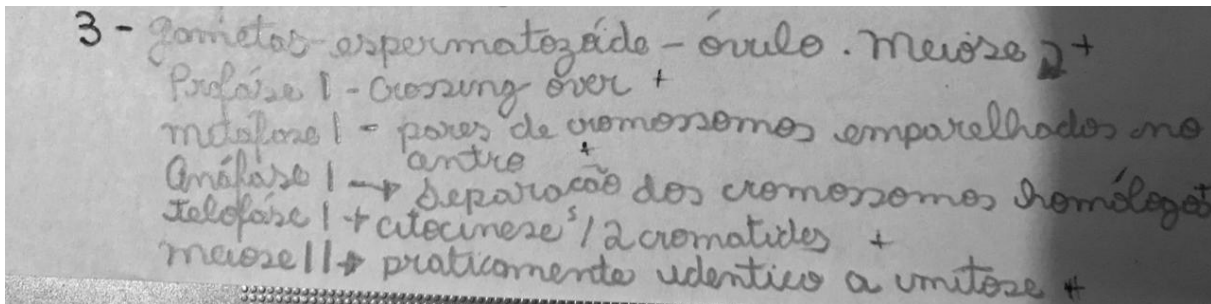 3 - gametas-espermatozóide - óvulo. meiose 2 +
Profáse I - Crossing over +
metáfase I - pares de cromossomos emparelhados no
centro +
Anáfáse I → Separação dos cromossomos homólogos +
telofáse I → citocinese s/ 2 cromatides +
meiose II → praticamente identico a mitose +